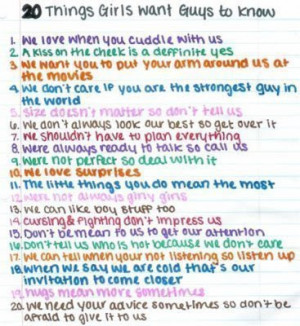 20 Things Girls Want Guys to know
1. We love when you cuddle with us
2. A kiss on the cheek is a deffinite yes
3. We want you to put your arm around us at
the movies
4. We don't care if you are the strongest guy in
the world
5. Size doesn't matter so don't tell us
6. We don't always look our best so get over it
7. We shouldn't have to plan everything
8. Were always ready to talk so call us
9. Were not perfect so deal with it
10. We love surprises
11. The little things you do mean the most
12. Were not always girly girls
13. We can like boy stuff too
14. Cursing & fighting don't impress us
15. Don't be mean to us to get our attention
16. Don't tell us who is hot because we don't care
17. We can tell when your not listening so listen up
18. When we say we are cold that's our
invitation to come closer
19. Hugs mean more sometimes
20. We need your advice sometimes so don't be
afraid to give it to us